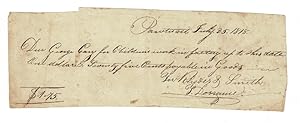 Pawtucket July 25. 1815.
Due George Gary for Childrens work in factory up to this date
One dollar & Seventy five Cents payable in Goods
For Smith
$1.75.